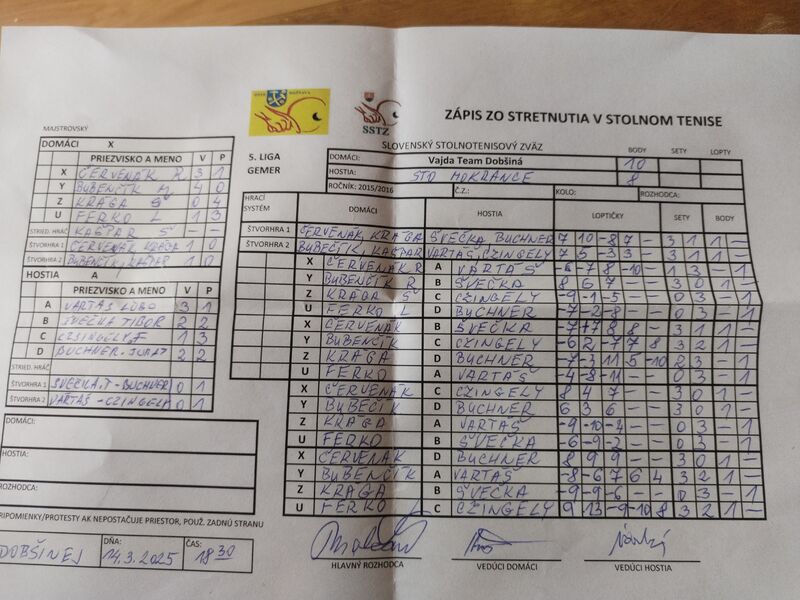 SSTZ
ZÁPIS ZO STRETNUTIA V STOLNOM TENISE
SLOVENSKÝ STOLNOTENISOVÝ ZVÄZ
5. LIGA
GEMER
BODY SETY LOPTY
DOMÁCI: Vajda Team Dobšiná 10
HOSTIA: STO MOKRANCE 8
ROČNÍK: 2015/2016 Č.Z.: KOLO: ROZHODCA:
MAJSTROVSKÝ
DOMÁCI X
PRIEZVISKO A MENO V P
X ČERVENÁK R 3 1
Y BUBENČÍK M 4 0
Z KRAGA Š 0 4
U FERKO L 1 3
STRIED. HRÁČ KAŠPAR S — —
ŠTVORHRA 1 ČERVENÁK KRAGA 1 0
ŠTVORHRA 2 BUBENČÍK, KAŠPAR 1 0
HOSTIA A
PRIEZVISKO A MENO V P
A VARTAŠ ĽUBO 3 1
B ŠVEČKA TIBOR 2 2
C CZINGELY F 1 3
D BUCHNER 2 2
STRIED. HRÁČ
ŠTVORHRA 1 ŠVEČKA.T - BUCHNER 0 1
ŠTVORHRA 2 VARTAŠ - CZINGELY 0 1
DOMÁCI:
HOSTIA:
ROZHODCA:
PRIPOMIENKY/PROTESTY AK NEPOSTAČUJE PRIESTOR, POUŽ. ZADNÚ STRANU
DOBŠINEJ DŇA: 14.3.2025 ČAS: 18 30
HRACÍ SYSTÉM DOMÁCI HOSTIA LOPTIČKY SETY BODY
ŠTVORHRA 1 ČERVENÁK, KRAGA ŠVEČKA BUCHNER 7 10 -8 7 — 3 1 1 —
ŠTVORHRA 2 BUBEČÍK, KAŠPAR VARTAŠ, CZINGELY 7 5 -3 3 — 3 1 1 —
X ČERVENÁK R A VARTAŠ -6 -7 8 -10 — 1 3 — 1
Y BUBENČÍK R B ŠVEČKA 8 6 7 — — 3 0 1 —
Z KRAGA Š C CZINGELY -9 -1 -5 — — 0 3 — 1
U FERKO L D BUCHNER -7 -2 -8 — — 0 3 — 1
X ČERVENÁK B ŠVEČKA -7 +7 8 8 — 3 1 1 —
Y BUBENČÍK C CZINGELY -6 2 -7 7 8 3 2 1 —
Z KRAGA D BUCHNER -7 -3 11 5 -10 2 3 — 1
U FERKO A VARTAŠ -4 -8 -11 — — 0 3 — 1
X ČERVENÁK C CZINGELY 8 4 7 — — 3 0 1 —
Y BUBEČÍK D BUCHNER 6 3 6 — — 3 0 1 —
Z KRAGA A VARTAŠ -9 -10 -4 — — 0 3 — 1
U FERKO B ŠVEČKA -6 -9 -2 — — 0 3 — 1
X ČERVENÁK D BUCHNER 8 9 9 — — 3 0 1 —
Y BUBENČÍK A VARTAŠ -8 -6 7 6 4 3 2 1 —
Z KRAGA B ŠVEČKA -9 -9 -6 — — 0 3 — 1
U FERKO C CZINGELY 9 -13 -9 10 8 3 2 1 —
HLAVNÝ ROZHODCA VEDÚCI DOMÁCI VEDÚCI HOSTIA